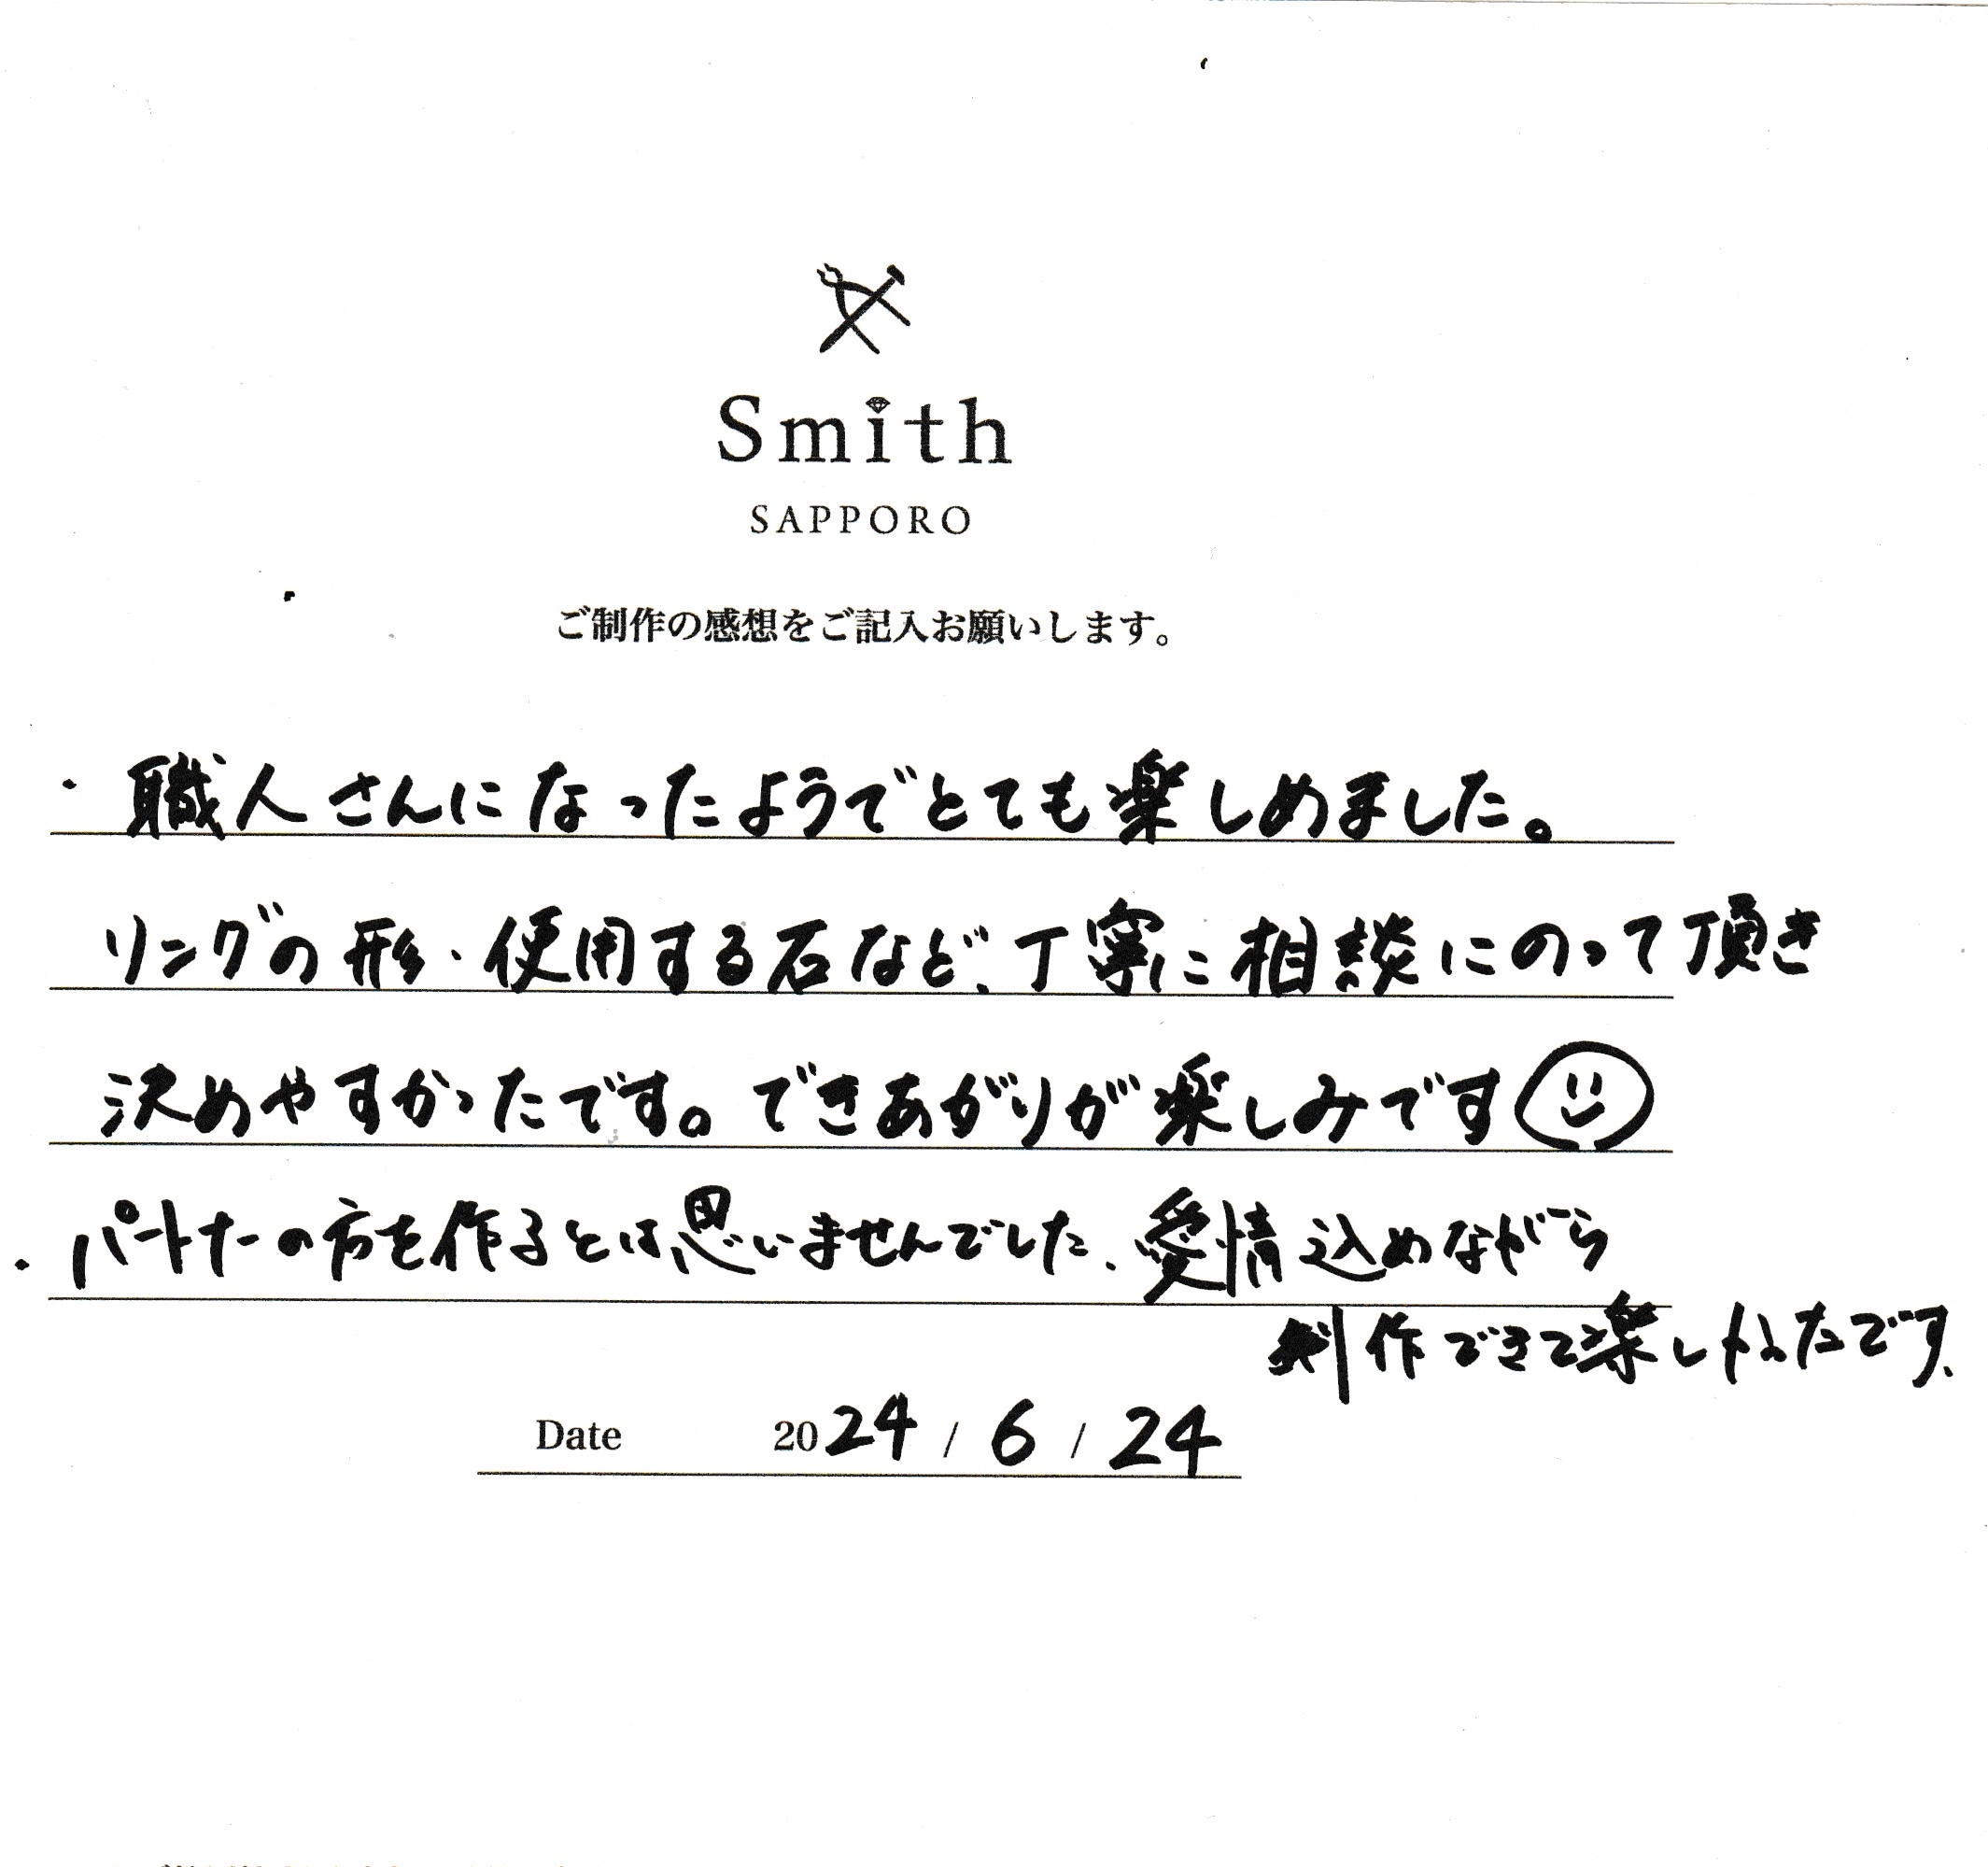 Smith
SAPPORO
ご制作の感想をご記入お願いします。
・職人さんになったようでとても楽しめました。
リングの形・使用する石など、丁寧に相談にのって頂き
決めやすかったです。できあがりが楽しみです
・パートナーの方を作るとは思いませんでした、愛情込めながら
制作できて楽しかったです、
Date 2024 / 6 / 24